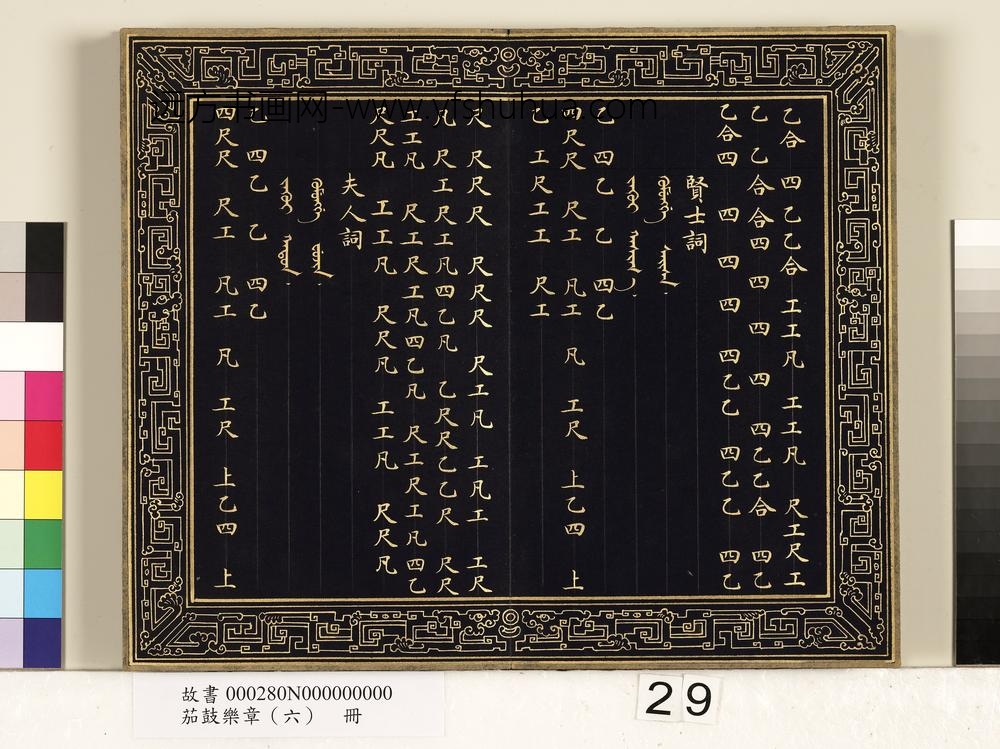 乙合 四 乙乙合 工工凡 工工凡 尺工尺工
乙 乙 合合四 四 四 四 四乙乙合 四乙
乙合四 四 四 四 四乙乙 四乙乙 四乙
賢士詞
乙 四乙 乙 四乙
四尺尺 尺工 凡工 凡 工尺 上乙四 上
乙 工尺工工 尺工
尺 尺尺尺 尺尺尺 尺工凡 工凡工 工尺
凡 尺工尺工凡四乙凡 乙尺尺乙乙尺 尺尺
工工凡 尺工尺工凡四乙凡 尺工尺工凡四乙
尺尺凡 工工凡 尺尺凡 工工凡 尺尺凡
夫人詞
乙 四乙 乙 四乙
四尺尺 尺工 凡工 凡 工尺 上乙四 上
四方书画网-www.yfshuhua.com
故書 000280N000000000
笳鼓樂章（六） 冊
29